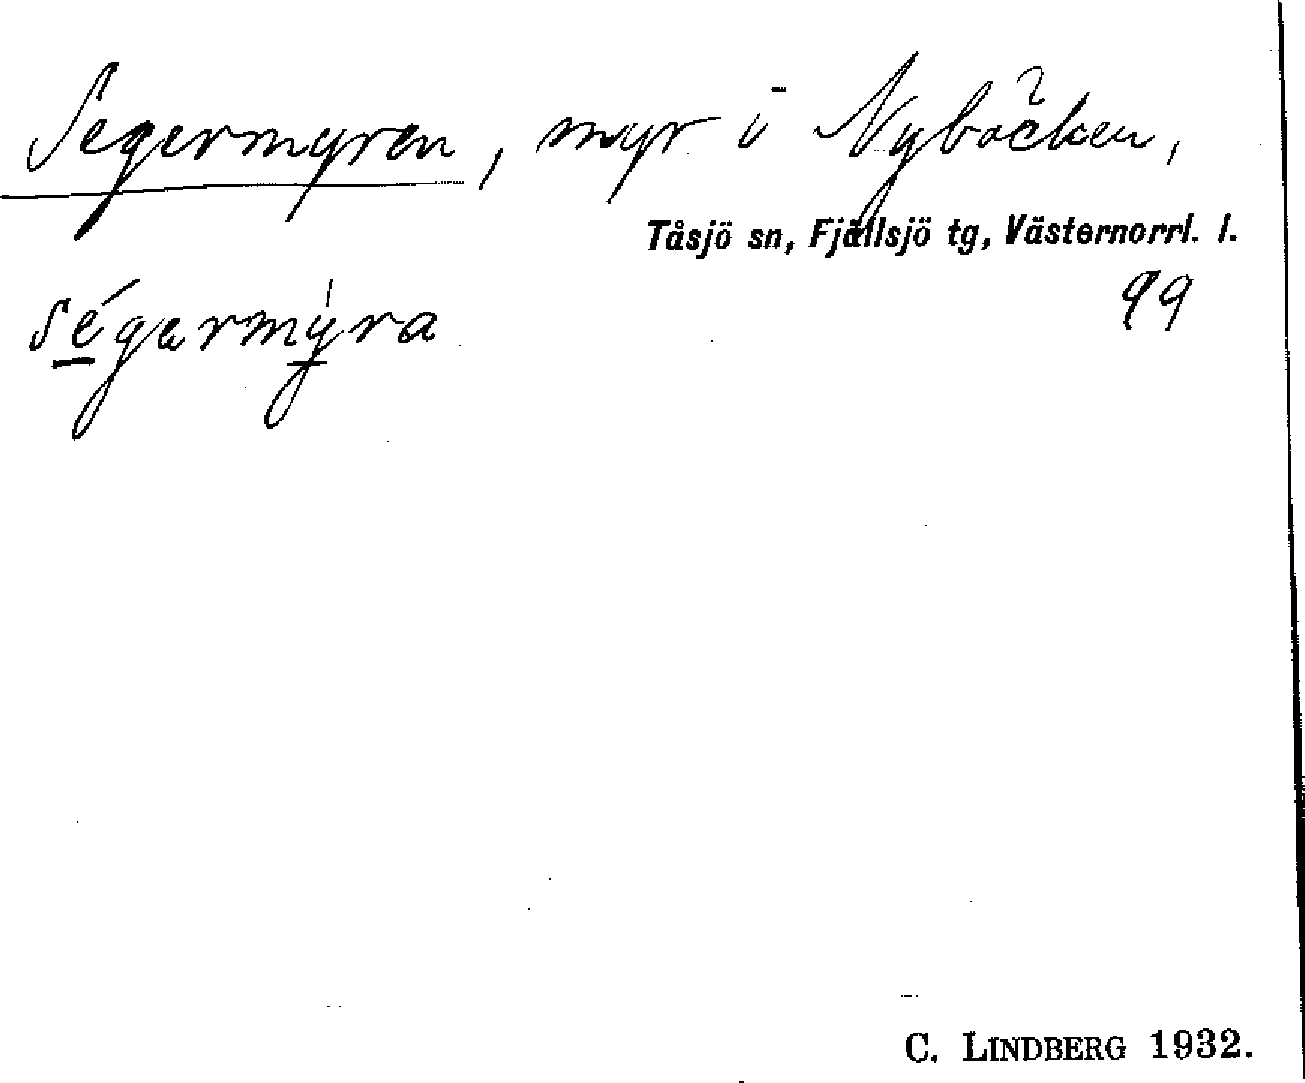 Segermyren, myr i Nybäcken,
Tåsjö sn, Fjällsjö tg, Västernorrl. l.
99
ségarmýra
C. LINDBERG 1932.